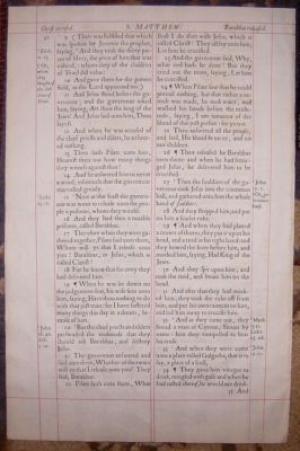 Christ accused.
S. MATTHEW.
Barabbas released.
9 (Then was fulfilled that which
was spoken by Jeremie the prophet,
saying, And they took the thirty pie-
ces of silver, the price of him that was
valued, whom they of the children
of Israel did value:
10 And gave them for the potters
field, as the Lord appointed me.)
11 And Jesus stood before the go-
vernour; and the governour asked
him, saying, Art thou the king of the
Jews? And Jesus said unto him, Thou
sayest.
12 And when he was accused of
the chief priests and elders, he answer-
ed nothing.
13 Then saith Pilate unto him,
Hearest thou not how many things
they witness against thee?
14 And he answered him to never
a word; insomuch that the governour
marvelled greatly.
15 Now at that feast the governour
was wont to release unto the peo-
ple a prisoner, whom they would.
16 And they had then a notable
prisoner, called Barabbas.
17 Therefore when they were ga-
thered together, Pilate said unto them,
Whom will ye that I release unto
you? Barabbas, or Jesus, which is
called Christ?
18 For he knew that for envy they
had delivered him.
19 ¶ When he was set down on
the judgement-seat, his wife sent unto
him, saying, Have thou nothing to do
with that just man: for I have suffered
many things this day in a dream, be-
cause of him.
20 But the chief priests and elders
perswaded the multitude that they
should ask Barabbas, and destroy
Jesus.
21 The governour answered and
said unto them, Whether of the twain
will ye that I release unto you? They
said, Barabbas.
22 Pilate saith unto them, What
shall I do then with Jesus, which is
called Christ? They all say unto him,
Let him be crucified.
23 And the governour said, Why,
what evil hath he done? But they
cried out the more, saying, Let him
be crucified.
24 ¶ When Pilate saw that he could
prevail nothing, but that rather a tu-
mult was made, he took water, and
washed his hands before the multi-
tude, saying, I am innocent of the
bloud of this just person: see ye to it.
25 Then answered all the people,
and said, His bloud be on us, and on
our children.
26 ¶ Then released he Barabbas
unto them: and when he had scour-
ged Jesus, he delivered him to be
crucified.
27 Then the souldiers of the go-
vernour took Jesus into the common
hall, and gathered unto him the whole
band of souldiers.
28 And they stripped him, and put
on him a scarlet robe.
29 ¶ And when they had platted
a crown of thorns, they put it upon his
head, and a reed in his right hand: and
they bowed the knee before him, and
mocked him, saying, Hail King of the
Jews.
30 And they spit upon him, and
took the reed, and smote him on the
head.
31 And after that they had mock-
ed him, they took the robe off from
him, and put his own raiment on him,
and led him away to crucifie him.
32 And as they came out, they
found a man of Cyrene, Simon by
name: him they compelled to bear
his cross.
33 And when they were come
unto a place called Golgotha, that is to
say, a place of a skull,
34 ¶ They gave him vineger to
drink, mingled with gall: and when he
had tasted thereof, he would not drink.
35 And